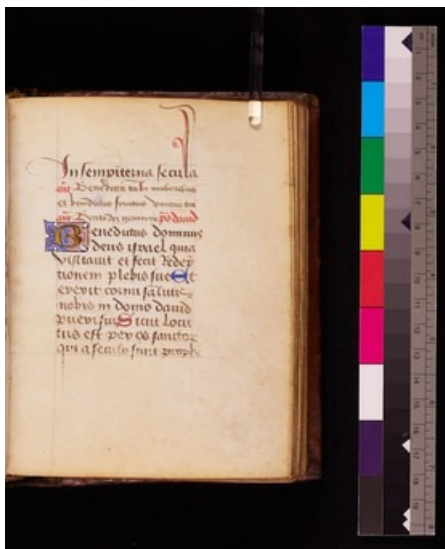 In sempiterna secula
Benedicta tu in mulieribus
et benedictus fructus ventris tui
Beata dei genitrix david
Benedictus dominus
deus israel quia
visitavit et fecit Redēp
tionem plebis sue Et
erexit cornu salutis
nobis in domo david
pueri sui Sicut locu
tus est per os sanctor
qui a seculo sunt proph